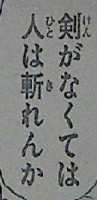 剣がなくては
人は斬れんか